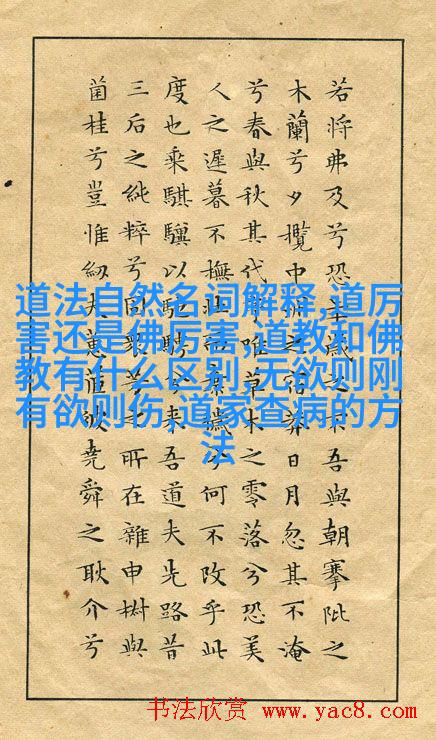 若將弗及兮恐年歲之不吾與朝搴阰之
木蘭兮夕攬中洲之宿莽日月忽其不淹
兮春與秋其代序唯草木之零落兮恐美
人之遲暮不撫壯而棄穢兮何不改乎此
度也乘騏驥以馳騁兮來吾道夫先路昔
三后之純粹兮固眾芳之所在雜申椒與
菌桂兮豈惟紉夫蕙茝彼堯舜之耿介兮
道法自然名词解释,道厉
害还是佛厉害,道教和佛
教有什么区别,无欲则刚
有欲则伤,道家查病的方
法
书法欣赏 www.yac8.com